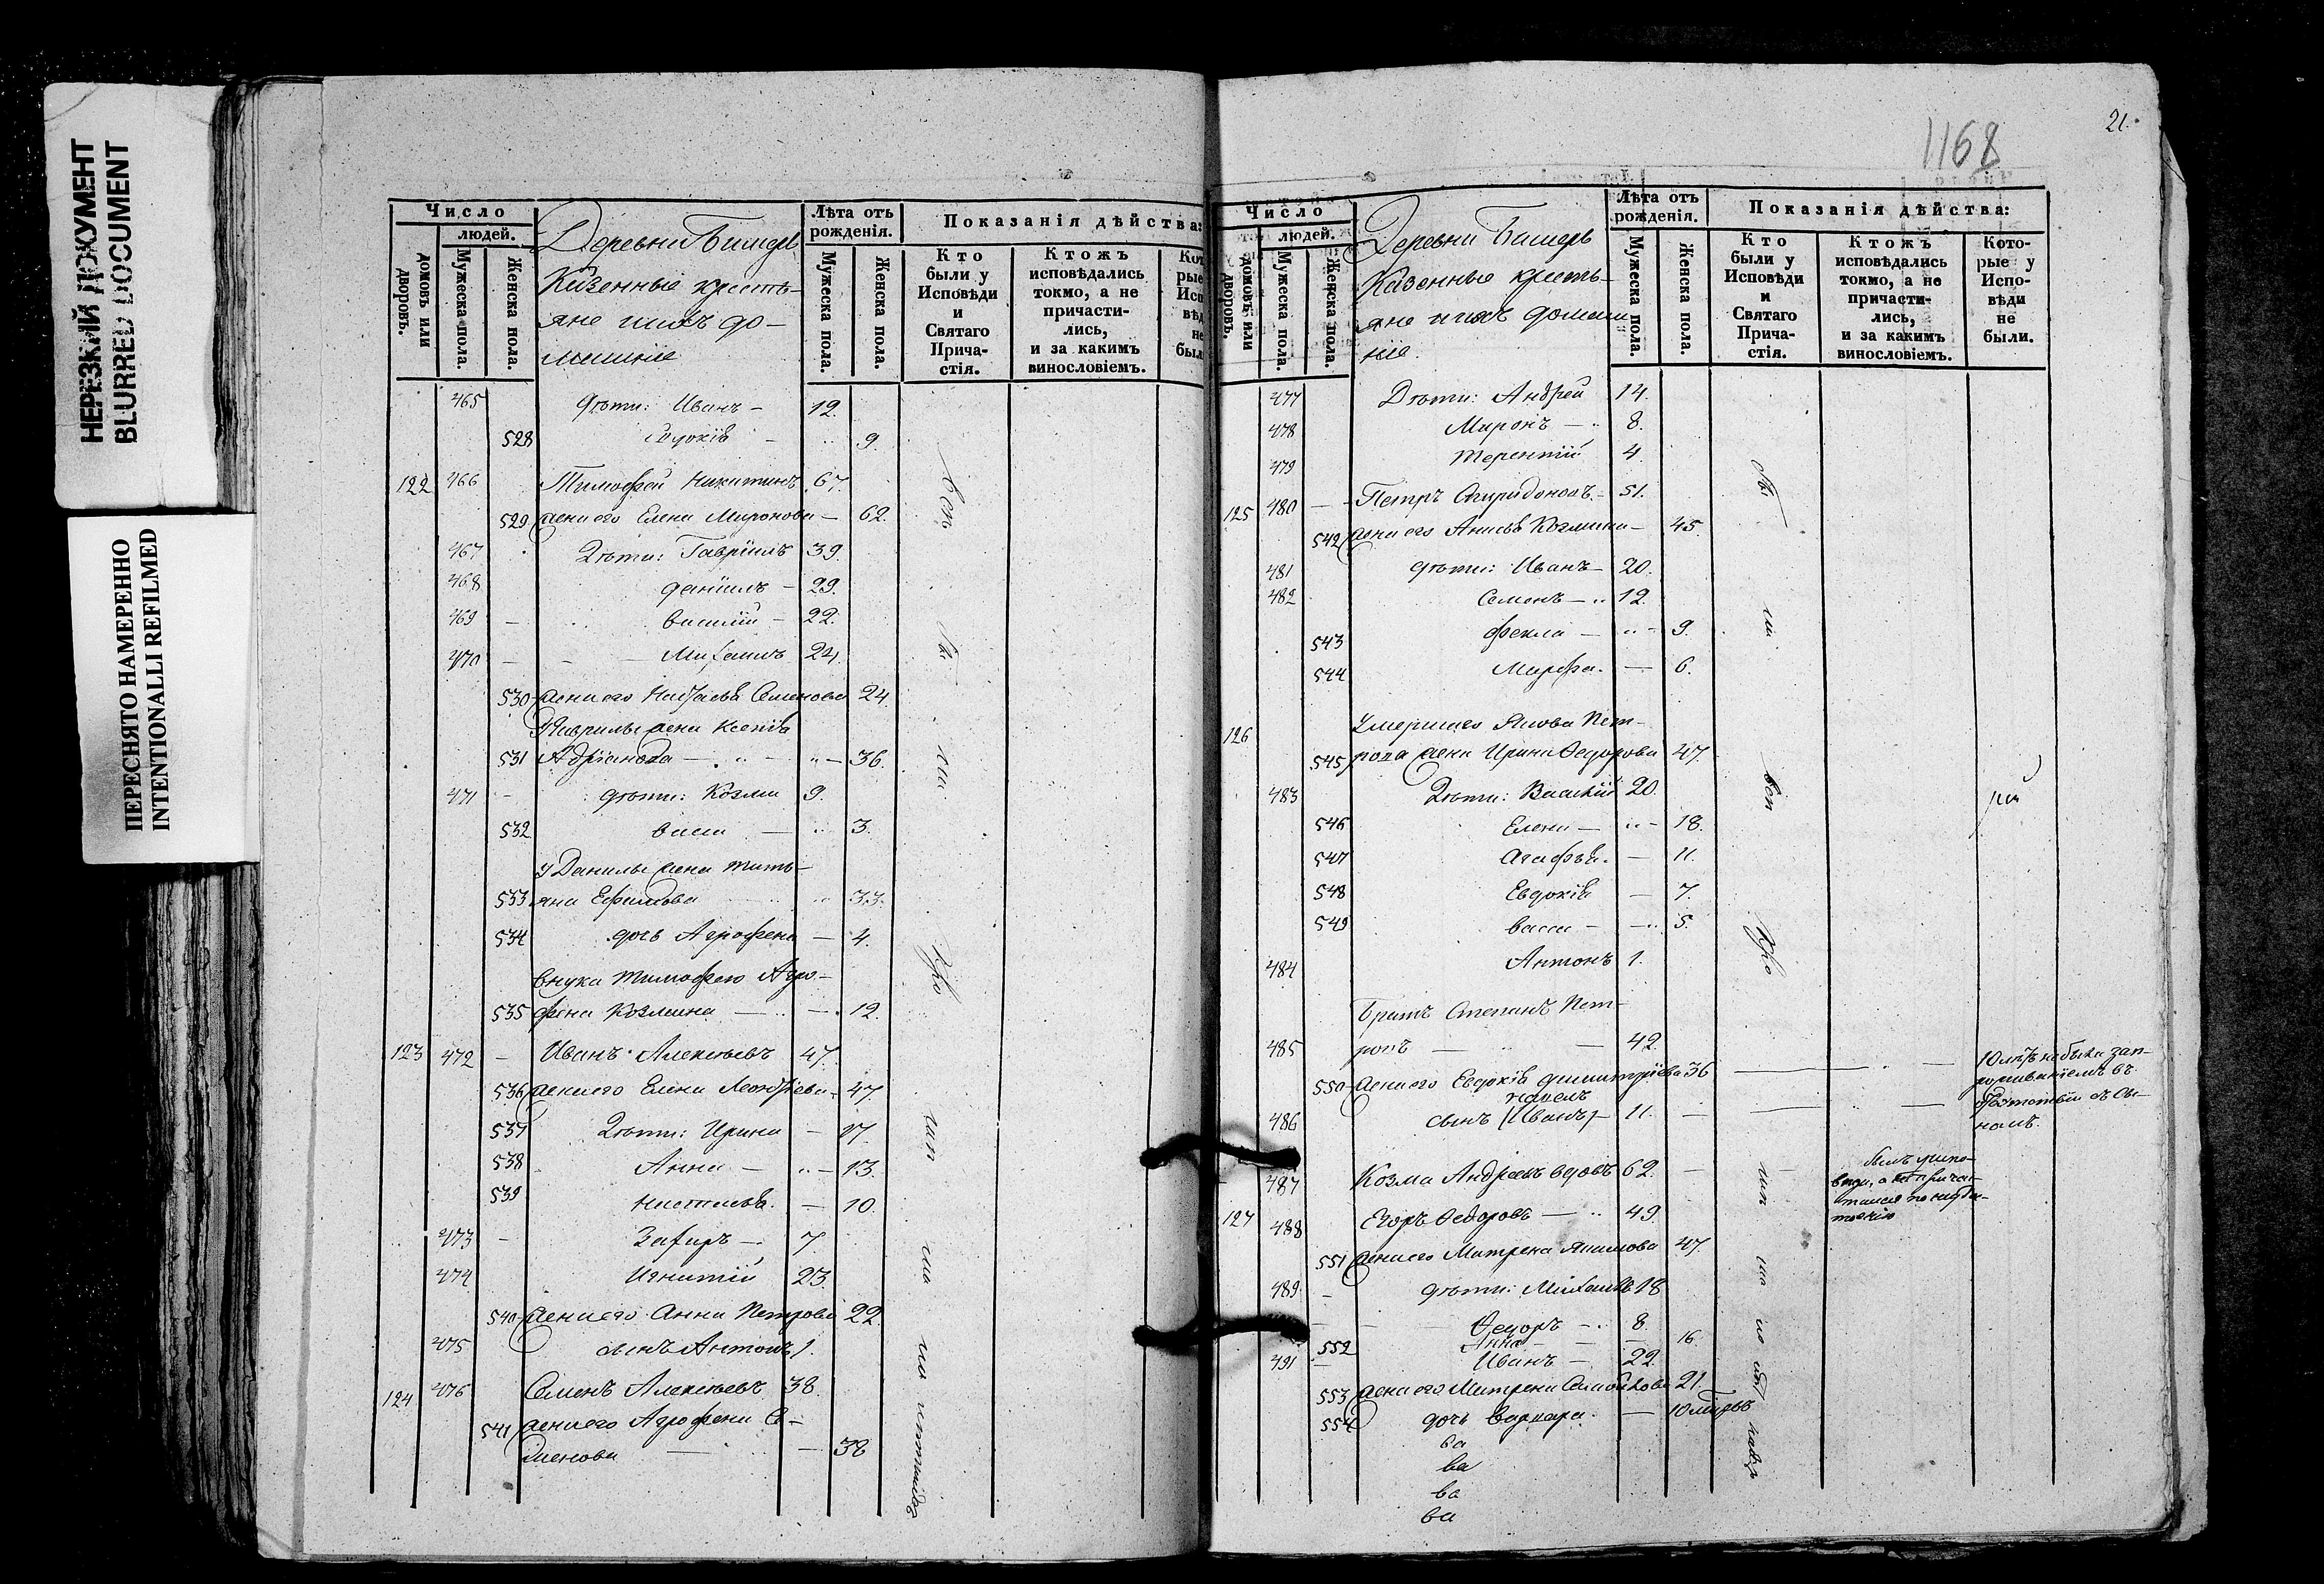 НЕРЕЗКИЙ ДОКУМЕНТ
BLURRED DOCUMENT
ПЕРЕСНЯТО НАМЕРЕННО
INTENTIONALLI REFILMED
Число
людей.
домовъ или дворовъ.
Мужеска пола.
Женска пола.
Деревни
Казенные кресть-
яне и ихъ до-
машніе
Лѣта отъ рожденія.
Мужеска пола.
Женска пола.
Показанія дѣйства:
Кто были у Исповѣди и Святаго Причастія.
Ктожъ исповѣдались токмо, а не причастились, и за какимъ винословіемъ.
465 Дѣти: Иванъ - 12.
528 Евдокія - 9.
122 466 Тимофей Никитинъ 67.
529 жена его Елена Миронова - 62.
467 Дѣти: Гавріилъ 39.
468 Даніилъ - 29.
469 Василій - 22.
470 Михаилъ 24.
530 жена его Наталья Семенова 24.
У Гаврилы жена Ксенія
531 Адріанова - 36.
471 дѣти: Козма 9.
532 Васса - 3.
У Данилы жена Тать-
533 яна Ефимова 33.
534 дочь Агрофена - 4.
внука Тимофею Агро-
535 фена Козмина - 12.
123 472 - Иванъ Алексѣевъ 47.
536 жена его Елена Леонтіева - 47.
537 Дѣти: Ирина - 17.
538 Анна - 13.
539 Настасья - 10.
473 - Захаръ - 7.
474 Игнатій 23.
540 жена его Анна Петрова 22.
475 сынъ Антонъ 1.
124 476 Семенъ Алексѣевъ 38.
541 жена его Агрофена Се-
менова - 38
1168
21.
Число
людей.
домовъ или дворовъ.
Мужеска пола.
Женска пола.
Деревни
Казенные кресть-
яне и ихъ домаш
ніе.
Лѣта отъ рожденія.
Мужеска пола.
Женска пола.
Показанія дѣйства:
Кто были у Исповѣди и Святаго Причастія.
Ктожъ исповѣдались токмо, а не причастились, и за какимъ винословіемъ.
Которые у Исповѣди не были.
477 Дѣти: Андрей 14.
478 Миронъ - 8.
479 Терентій 4.
125 480 - Петръ Спиридоновъ - 51.
542 жена его Анисья Козмина - 45.
481 дѣти: Иванъ - 20.
482 Семенъ - 12.
543 Фекла - 9.
544 Марфа - 6.
126 Умершаго Якова Пет-
545 рова жена Ирина Ѳедорова 47.
483 Дѣти: Василій 20.
546 Елена - 18.
547 Агафья - 11.
548 Евдокія - 7.
549 Васса - 5.
484 Антонъ 1.
Братъ Степанъ Пет-
485 ровъ - 42.
550 жена его Евдокія Димитріева 36
486 сынъ (Иванъ) - 11.
Павелъ
487 Козма Андреевъ вдовъ 62.
127 488 Егоръ Ѳедоровъ - 49.
551 жена его Матрена Якимова 47.
489 - дѣти: Михаилъ 18
Ѳедоръ - 8.
552 Анна - 16.
491 Иванъ - 22.
553 жена его Матрена Самойлова 21.
554 дочь Варвара - 10 
ва
ва
ва
ва